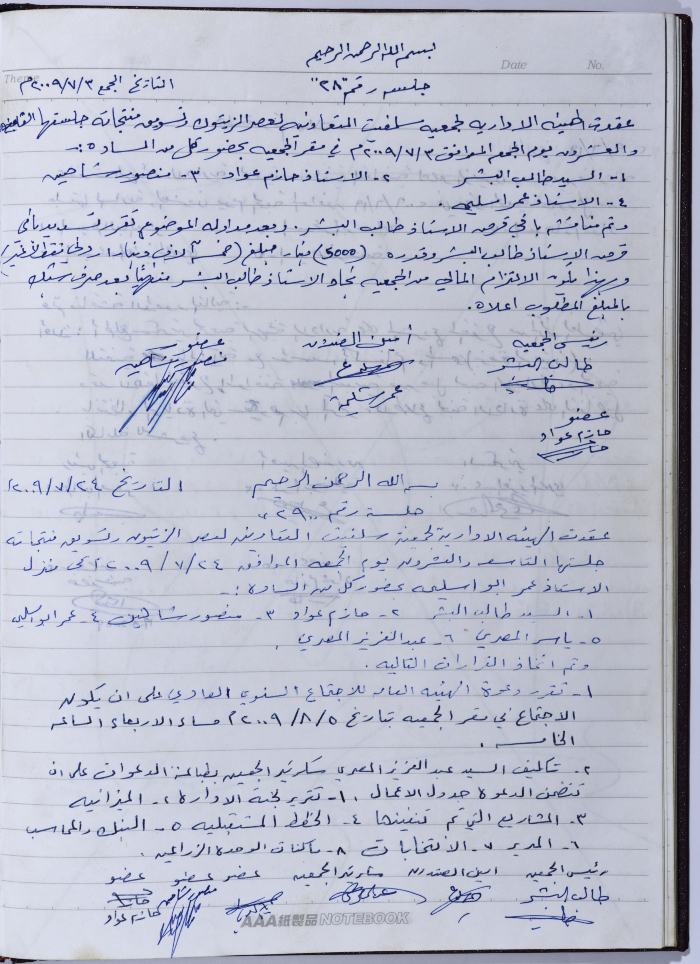 بسم الله الرحمن الرحيم
Theme Date No.
جلسه رقم "٢٨" التاريخ الجمع ٢٠٠٩/٧/٣م
عقدت الهيئه الاداريه لجمعيه سلفيت التعاونيه لعصر الزيتون وتسويق منتجاته جلستها الثامنه
والعشرون يوم الجمعه الموافق ٢٠٠٩/٧/٣م في مقر الجمعيه بحضور كل من الساده :-
١- السيد طالب البشر ٢- الاستاذ حازم عواد ٣- منصور شاهين
٤- الاستاذ عمر اسليمه.
وتم مناقشه باقي قرض الاستاذ طالب البشر. وبعد مداوله الموضوع تقرر تسديد باقي
قرض الاستاذ طالب البشر وقدره (5000) دينار مبلغ (خمسة الاف دينار اردني فقط لا غير)
وبهذا يكون الالتزام المالي من الجمعيه تجاه الاستاذ طالب البشر منتهياً بعد صرف شيك
بالمبلغ المطلوب اعلاه.
رئيس الجمعيه أمين الصندوق عضو
طالب البشر منصور شاهين
عمر سليمة
عضو
حازم عواد
بسم الله الرحمن الرحيم التاريخ ٢٠٠٩/٧/٢٤
جلسة رقم "٢٩"
عقدت الهيئه الادارية لجمعية سلفيت التعاونيه لعصر الزيتون وتسويق منتجاته
جلستها التاسعه والعشرون يوم الجمعه الموافق ٢٠٠٩/٧/٢٤م في منزل
الاستاذ عمر ابو اسليمه بحضور كل من السادة :-
١- السيد طالب البشر ٢- حازم عواد ٣- منصور شاهين ٤- عمر ابو اسليمه
٥- ياسر المصري ٦- عبد العزيز المصري.
وتم اتخاذ القرارات التاليه.
١- تقرر دعوة الهيئه العامه للاجتماع السنوي العادي على ان يكون
الاجتماع في مقر الجمعيه بتاريخ ٢٠٠٩/٨/٥م مساء الاربعاء الساعه
الخامسه.
٢- تكليف السيد عبد العزيز المصري سكرتير الجمعيه بطباعة الدعوات على ان
تتضمن الدعوة جدول الاعمال ١- تقرير لجنة الادارة ٢- الميزانيه
٣- المشاريع التي تم تنفيذها ٤- الخطط المستقبليه ٥- البنك والمحاسب
٦- المدير ٧- الانتخابات ٨- ماكنات الوحدة الزراعيه.
رئيس الجمعيه امين الصندوق سكرتير الجمعيه عضو عضو عضو
طالب البشر منصور شاهين
حازم عواد
AAA紙製品 NOTEBOOK